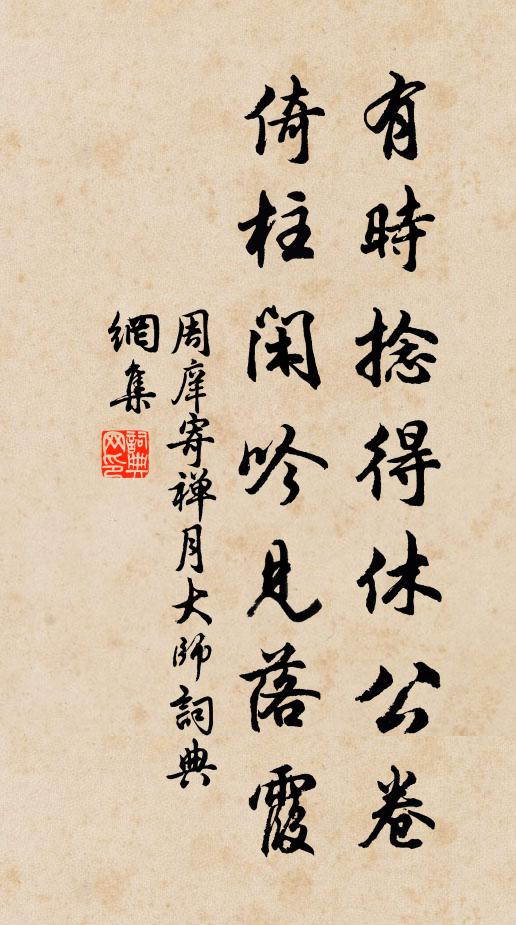 有時捻得休公卷
倚柱閑吟見落霞
周庠寄禪月大師詞典
網集
詞典
网印